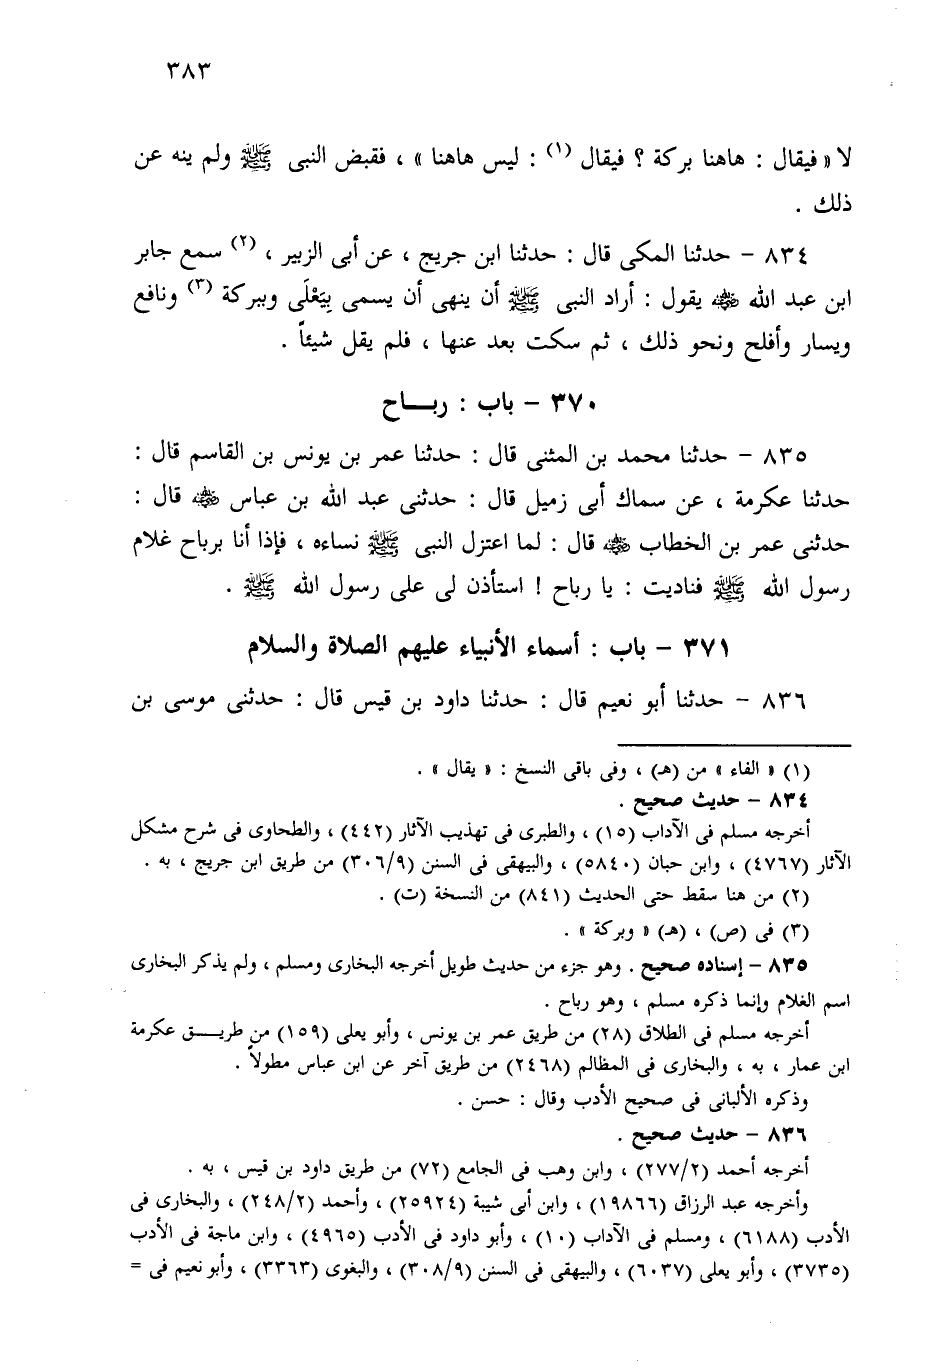 ٣٨٣
لا « فيقال : هاهنا بركة ؟ فيقال (١) : ليس هاهنا » ، فقبض النبى ﷺ ولم ينه عن
ذلك .
٨٣٤ - حدثنا المكى قال : حدثنا ابن جريج ، عن أبى الزبير ، (٢) سمع جابر
ابن عبد الله رضي الله عنه يقول : أراد النبى ﷺ أن ينهى أن يسمى بِيَعْلَى وببركة (٣) ونافع
ويسار وأفلح ونحو ذلك ، ثم سكت بعد عنها ، فلم يقل شيئاً .
٣٧٠ - باب : ربـــاح
٨٣٥ - حدثنا محمد بن المثنى قال : حدثنا عمر بن يونس بن القاسم قال :
حدثنا عكرمة ، عن سماك أبى زميل قال : حدثنى عبد الله بن عباس رضي الله عنه قال :
حدثنى عمر بن الخطاب رضي الله عنه قال : لما اعتزل النبى ﷺ نساءه ، فإذا أنا برباح غلام
رسول الله ﷺ فناديت : يا رباح ! استأذن لى على رسول الله ﷺ .
٣٧١ - باب : أسماء الأنبياء عليهم الصلاة والسلام
٨٣٦ - حدثنا أبو نعيم قال : حدثنا داود بن قيس قال : حدثنى موسى بن
(١) « الفاء » من (هـ) ، وفى باقى النسخ : « يقال » .
٨٣٤ - حديث صحيح .
أخرجه مسلم فى الآداب (١٥) ، والطبرى فى تهذيب الآثار (٤٤٢) ، والطحاوى فى شرح مشكل
الآثار (٤٧٦٧) ، وابن حبان (٥٨٤٠) ، والبيهقى فى السنن (٣٠٦/٩) من طريق ابن جريج ، به .
(٢) من هنا سقط حتى الحديث (٨٤١) من النسخة (ت) .
(٣) فى (ص) ، (هـ) « وبركة » .
٨٣٥ - إسناده صحيح . وهو جزء من حديث طويل أخرجه البخارى ومسلم ، ولم يذكر البخارى
اسم الغلام وإنما ذكره مسلم ، وهو رباح .
أخرجه مسلم فى الطلاق (٢٨) من طريق عمر بن يونس ، وأبو يعلى (١٥٩) من طريـــق عكرمة
ابن عمار ، به ، والبخارى فى المظالم (٢٤٦٨) من طريق آخر عن ابن عباس مطولاً .
وذكره الألبانى فى صحيح الأدب وقال : حسن .
٨٣٦ - حديث صحيح .
أخرجه أحمد (٢٧٧/٢) ، وابن وهب فى الجامع (٧٢) من طريق داود بن قيس ، به .
وأخرجه عبد الرزاق (١٩٨٦٦) ، وابن أبى شيبة (٢٥٩٢٤) ، وأحمد (٢٤٨/٢) ، والبخارى فى
الأدب (٦١٨٨) ، ومسلم فى الآداب (١٠) ، وأبو داود فى الأدب (٤٩٦٥) ، وابن ماجة فى الأدب
(٣٧٣٥) ، وأبو يعلى (٦٠٣٧) ، والبيهقى فى السنن (٣٠٨/٩) ، والبغوى (٣٣٦٣) ، وأبو نعيم فى =